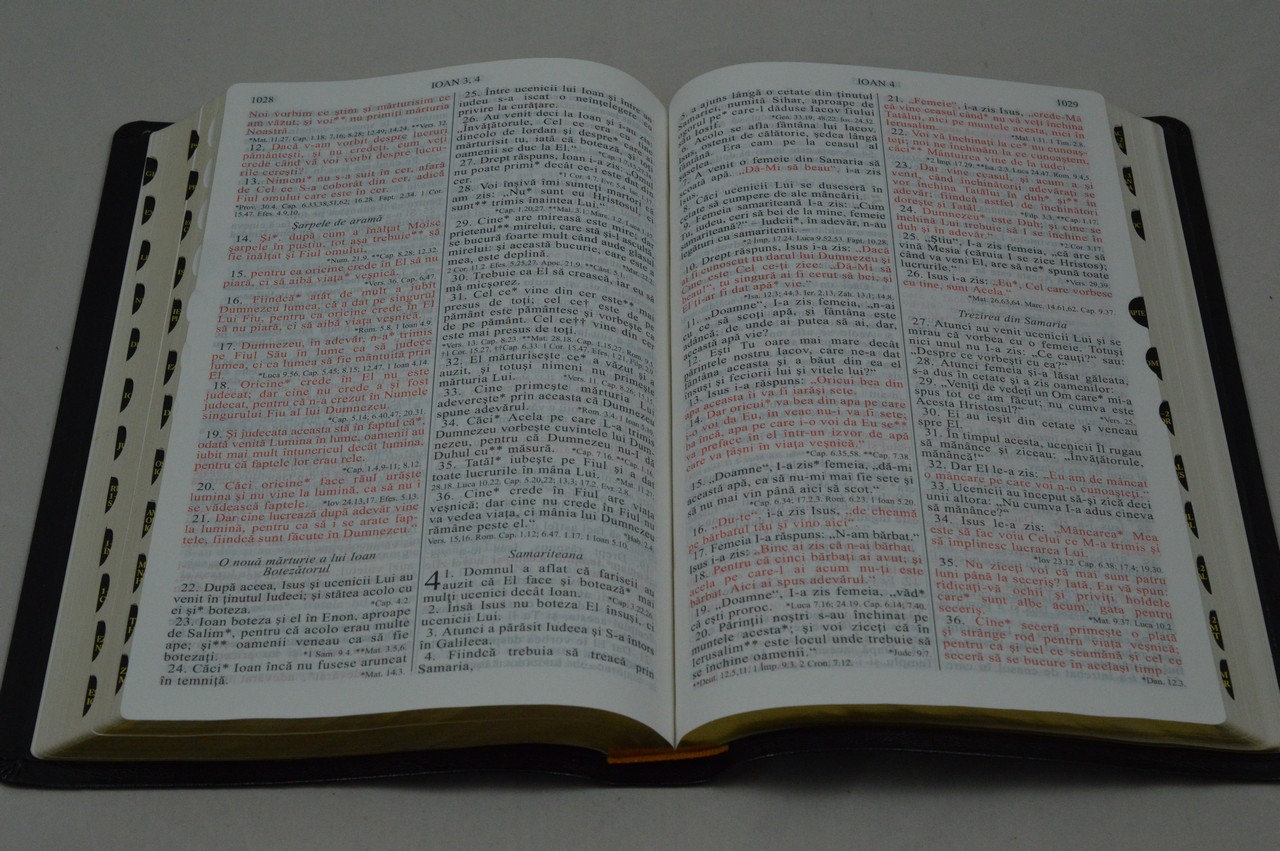 IOAN 3, 4
1028
Noi vorbim ce ştim şi mărturisim ce
am văzut; şi voi** nu primiţi mărturia
Noastră.
*Mat. 11.27; Cap. 1.18; 7.16; 8.28; 12.49; 14.24. **Vers. 32.
12. Dacă v-am vorbit despre lucruri
pământeşti, şi nu credeţi, cum veţi
crede când vă voi vorbi despre lucru-
rile cereşti?
13. Nimeni* nu s-a suit în cer, afară
de Cel ce S-a coborât din cer, adică
Fiul omului, care este în cer.
*Prov. 30.4. Cap. 6.33,38,51,62; 16.28. Fapt. 2.34. 1 Cor.
15.47. Efes. 4.9,10.
Şarpele de aramă
14. Şi*, după cum a înălţat Moise
şarpele în pustiu, tot aşa trebuie** să
fie înălţat şi Fiul omului,
*Num. 21.9. **Cap. 8.28; 12.32.
15. pentru ca oricine crede în El să nu
piară, ci să aibă viaţa* veşnică.
*Vers. 36. Cap. 6.47.
16. Fiindcă* atât de mult a iubit
Dumnezeu lumea, că a dat pe singurul
Lui Fiu, pentru ca oricine crede în El
să nu piară, ci să aibă viaţa veşnică.
*Rom. 5.8. 1 Ioan 4.9.
17. Dumnezeu, în adevăr, n-a* trimis
pe Fiul Său în lume ca să judece
lumea, ci ca lumea să fie mântuită prin
El.
*Luca 9.56. Cap. 5.45; 8.15; 12.47. 1 Ioan 4.14.
18. Oricine* crede în El nu este
judecat; dar cine nu crede a şi fost
judecat, pentru că n-a crezut în Numele
singurului Fiu al lui Dumnezeu.
*Cap. 5.14; 6.40,47; 20.31.
19. Şi judecata aceasta stă în faptul că*,
odată venită Lumina în lume, oamenii au
iubit mai mult întunericul decât lumina,
pentru că faptele lor erau rele.
*Cap. 1.4,9-11; 8.12.
20. Căci oricine* face răul urăşte
lumina şi nu vine la lumină, ca să nu i
se vădească faptele.
*Iov 24.13,17. Efes. 5.13.
21. Dar cine lucrează după adevăr vine
la lumină, pentru ca să i se arate fap-
tele, fiindcă sunt făcute în Dumnezeu.
O nouă mărturie a lui Ioan
Botezătorul
22. După aceea, Isus şi ucenicii Lui au
venit în ţinutul Iudeii; şi stătea acolo cu
ei şi* boteza.
*Cap. 4.2.
23. Ioan boteza şi el în Enon, aproape
de Salim*, pentru că acolo erau multe
ape; şi** oamenii veneau ca să fie
botezaţi.
*1 Sam. 9.4. **Mat. 3.5,6.
24. Căci* Ioan încă nu fusese aruncat
în temniţă.
*Mat. 14.3.
25. Între ucenicii lui Ioan şi între un
iudeu s-a iscat o neînţelegere cu
privire la curăţare.
26. Au venit deci la Ioan şi i-au zis:
„Învăţătorule, Cel ce era cu tine
dincolo de Iordan şi despre* care ai
mărturisit tu, iată că botează, şi toţi
oamenii se duc la El.”
27. Drept răspuns, Ioan i-a zis: „Omul*
nu poate primi decât ce-i este dat din
cer.
28. Voi înşivă îmi sunteţi martori că
am zis: „Nu* sunt eu Hristosul, ci
sunt** trimis înaintea Lui.”
29. Cine* are mireasă este mire; dar
prietenul** mirelui, care stă şi-l ascultă,
se bucură foarte mult când aude glasul
mirelui: şi această bucurie, care este a
mea, este deplină.
30. Trebuie ca El să crească, iar eu să
mă micşorez.
31. Cel ce* vine din cer este** mai
presus de toţi; cel ce† este de pe
pământ este pământesc şi vorbeşte ca
de pe pământ. Cel ce†† vine din cer
este mai presus de toţi.
32. El mărturiseşte ce* a văzut şi a
auzit, şi totuşi nimeni nu primeşte
mărturia Lui.
33. Cine primeşte mărturia Lui
adevereşte* prin aceasta că Dumnezeu
spune adevărul.
*Rom. 3.4.
34. Căci* Acela pe care L-a trimis
Dumnezeu vorbeşte cuvintele lui Dum-
nezeu, pentru că Dumnezeu nu-I dă
Duhul cu** măsură.
35. Tatăl* iubeşte pe Fiul şi a dat
toate lucrurile în mâna Lui.
36. Cine* crede în Fiul are viaţa
veşnică; dar cine nu crede în Fiul nu
va vedea viaţa, ci mânia lui Dumnezeu
rămâne peste el.”
Samariteana
4 1. Domnul a aflat că fariseii au
auzit că El face şi botează* mai
mulţi ucenici decât Ioan.
2. Însă Isus nu boteza El însuşi, ci
ucenicii Lui.
3. Atunci a părăsit Iudeea şi S-a întors
în Galileea.
4. Fiindcă trebuia să treacă prin
Samaria,
IOAN 4
1029
5. a ajuns lângă o cetate din ţinutul
Samariei, numită Sihar, aproape de
ogorul pe* care-l dăduse Iacov fiului
său Iosif.
*Gen. 33.19; 48.22. Ios. 24.32.
6. Acolo se afla fântâna lui Iacov.
Isus, ostenit de călătorie, şedea lângă
fântână. Era cam pe la ceasul al
7. A venit o femeie din Samaria să
scoată apă. „Dă-Mi să beau”, i-a zis
8. Căci ucenicii Lui se duseseră în
cetate să cumpere de ale mâncării.
9. Femeia samariteană I-a zis: „Cum
Tu, iudeu, ceri să bei de la mine, femeie
samariteancă?” – Iudeii*, în adevăr, n-au
legături cu samaritenii. –
10. Drept răspuns, Isus i-a zis: „Dacă
ai fi cunoscut tu darul lui Dumnezeu şi
cine este Cel ce-ţi zice: „Dă-Mi să
beau!”, tu singură ai fi cerut să bei, şi
El ţi-ar fi dat apă* vie.”
11. „Doamne”, I-a zis femeia, „n-ai
cu ce să scoţi apă, şi fântâna este
adâncă; de unde ai putea să ai, dar,
această apă vie?
12. Eşti Tu oare mai mare decât
părintele nostru Iacov, care ne-a dat
fântâna aceasta şi a băut din ea el
însuşi şi feciorii lui şi vitele lui?”
13. Isus i-a răspuns: „Oricui bea din
apa aceasta îi va fi iarăşi sete.
14. Dar oricui* va bea din apa pe care
i-o voi da Eu, în veac nu-i va fi sete;
ba încă, apa pe care i-o voi da Eu se**
va preface în el într-un izvor de apă
care va ţâşni în viaţa veşnică.”
*Cap. 6.35,58. **Cap. 7.38.
15. „Doamne”, I-a zis* femeia, „dă-mi
această apă, ca să nu-mi mai fie sete şi
să nu mai vin până aici să scot.”
16. „Du-te”, i-a zis Isus, „de cheamă
pe bărbatul tău şi vino aici”
17. Femeia I-a răspuns: „N-am bărbat.”
Isus i-a zis: „Bine ai zis că n-ai bărbat.
18. Pentru că cinci bărbaţi ai avut; şi
acela pe care-l ai acum nu-ţi este
bărbat. Aici ai spus adevărul.”
19. „Doamne”, I-a zis femeia, „văd*
că eşti proroc.
*Luca 7.16; 24.19. Cap. 6.14; 7.40.
20. Părinţii noştri s-au închinat pe
muntele acesta*; şi voi ziceţi că în
Ierusalim** este locul unde trebuie să
se închine oamenii.”
*Jude. 9.7.
**Deut. 12.5,11. 1 Imp. 9.3. 2 Cron. 7.12.
21. „Femeie”, i-a zis Isus, „crede-Mă
că vine ceasul când* nu vă veţi închina
Tatălui, nici pe muntele acesta, nici în
Ierusalim.
22. Voi vă închinaţi la ce* nu cunoaş-
teţi; noi ne închinăm la ce cunoaştem,
căci** Mântuirea vine de la iudei.
23. Dar vine ceasul, şi acum a şi
venit, când închinătorii adevăraţi se
vor închina Tatălui în duh* şi** în
adevăr; fiindcă astfel de închinători
doreşte şi Tatăl.
24. Dumnezeu* este Duh; şi cine se
închină Lui trebuie să I se închine în
duh şi în adevăr.”
*2 Cor. 3.17.
25. „Ştiu”, I-a zis femeia, „că are să
vină Mesia (căruia I se zice Hristos);
când va veni El, are să ne* spună toate
lucrurile.”
*Vers. 29,39.
26. Isus i-a zis: „Eu*, Cel care vorbesc
cu tine, sunt Acela.”
*Mat. 26.63,64. Marc. 14.61,62. Cap. 9.37.
Trezirea din Samaria
27. Atunci au venit ucenicii Lui şi se
mirau că vorbea cu o femeie. Totuşi
nici unul nu I-a zis: „Ce cauţi?” sau:
„Despre ce vorbeşti cu ea?”
28. Atunci femeia şi-a lăsat găleata,
s-a dus în cetate şi a zis oamenilor:
29. „Veniţi de vedeţi un Om care* mi-a
spus tot ce am făcut; nu cumva este
Acesta Hristosul?”
*Vers. 25.
30. Ei au ieşit din cetate şi veneau
spre El.
31. În timpul acesta, ucenicii Îl rugau
să mănânce şi ziceau: „Învăţătorule,
mănâncă!”
32. Dar El le-a zis: „Eu am de mâncat
o mâncare pe care voi n-o cunoaşteţi.”
33. Ucenicii au început să-şi zică deci
unii altora: „Nu cumva I-a adus cineva
să mănânce?”
34. Isus le-a zis: „Mâncarea* Mea
este să fac voia Celui ce M-a trimis şi
să împlinesc lucrarea Lui.
*Iov 23.12. Cap. 6.38; 17.4; 19.30.
35. Nu ziceţi voi că mai sunt patru
luni până la seceriş? Iată, Eu vă spun:
ridicaţi-vă ochii şi priviţi holdele
care* sunt albe acum, gata pentru
seceriş.
*Mat. 9.37. Luca 10.2.
36. Cine* seceră primeşte o plată
şi strânge rod pentru viaţa veşnică;
pentru ca şi cel ce seamănă şi cel ce
seceră să se bucure în acelaşi timp.
*Dan. 12.3.